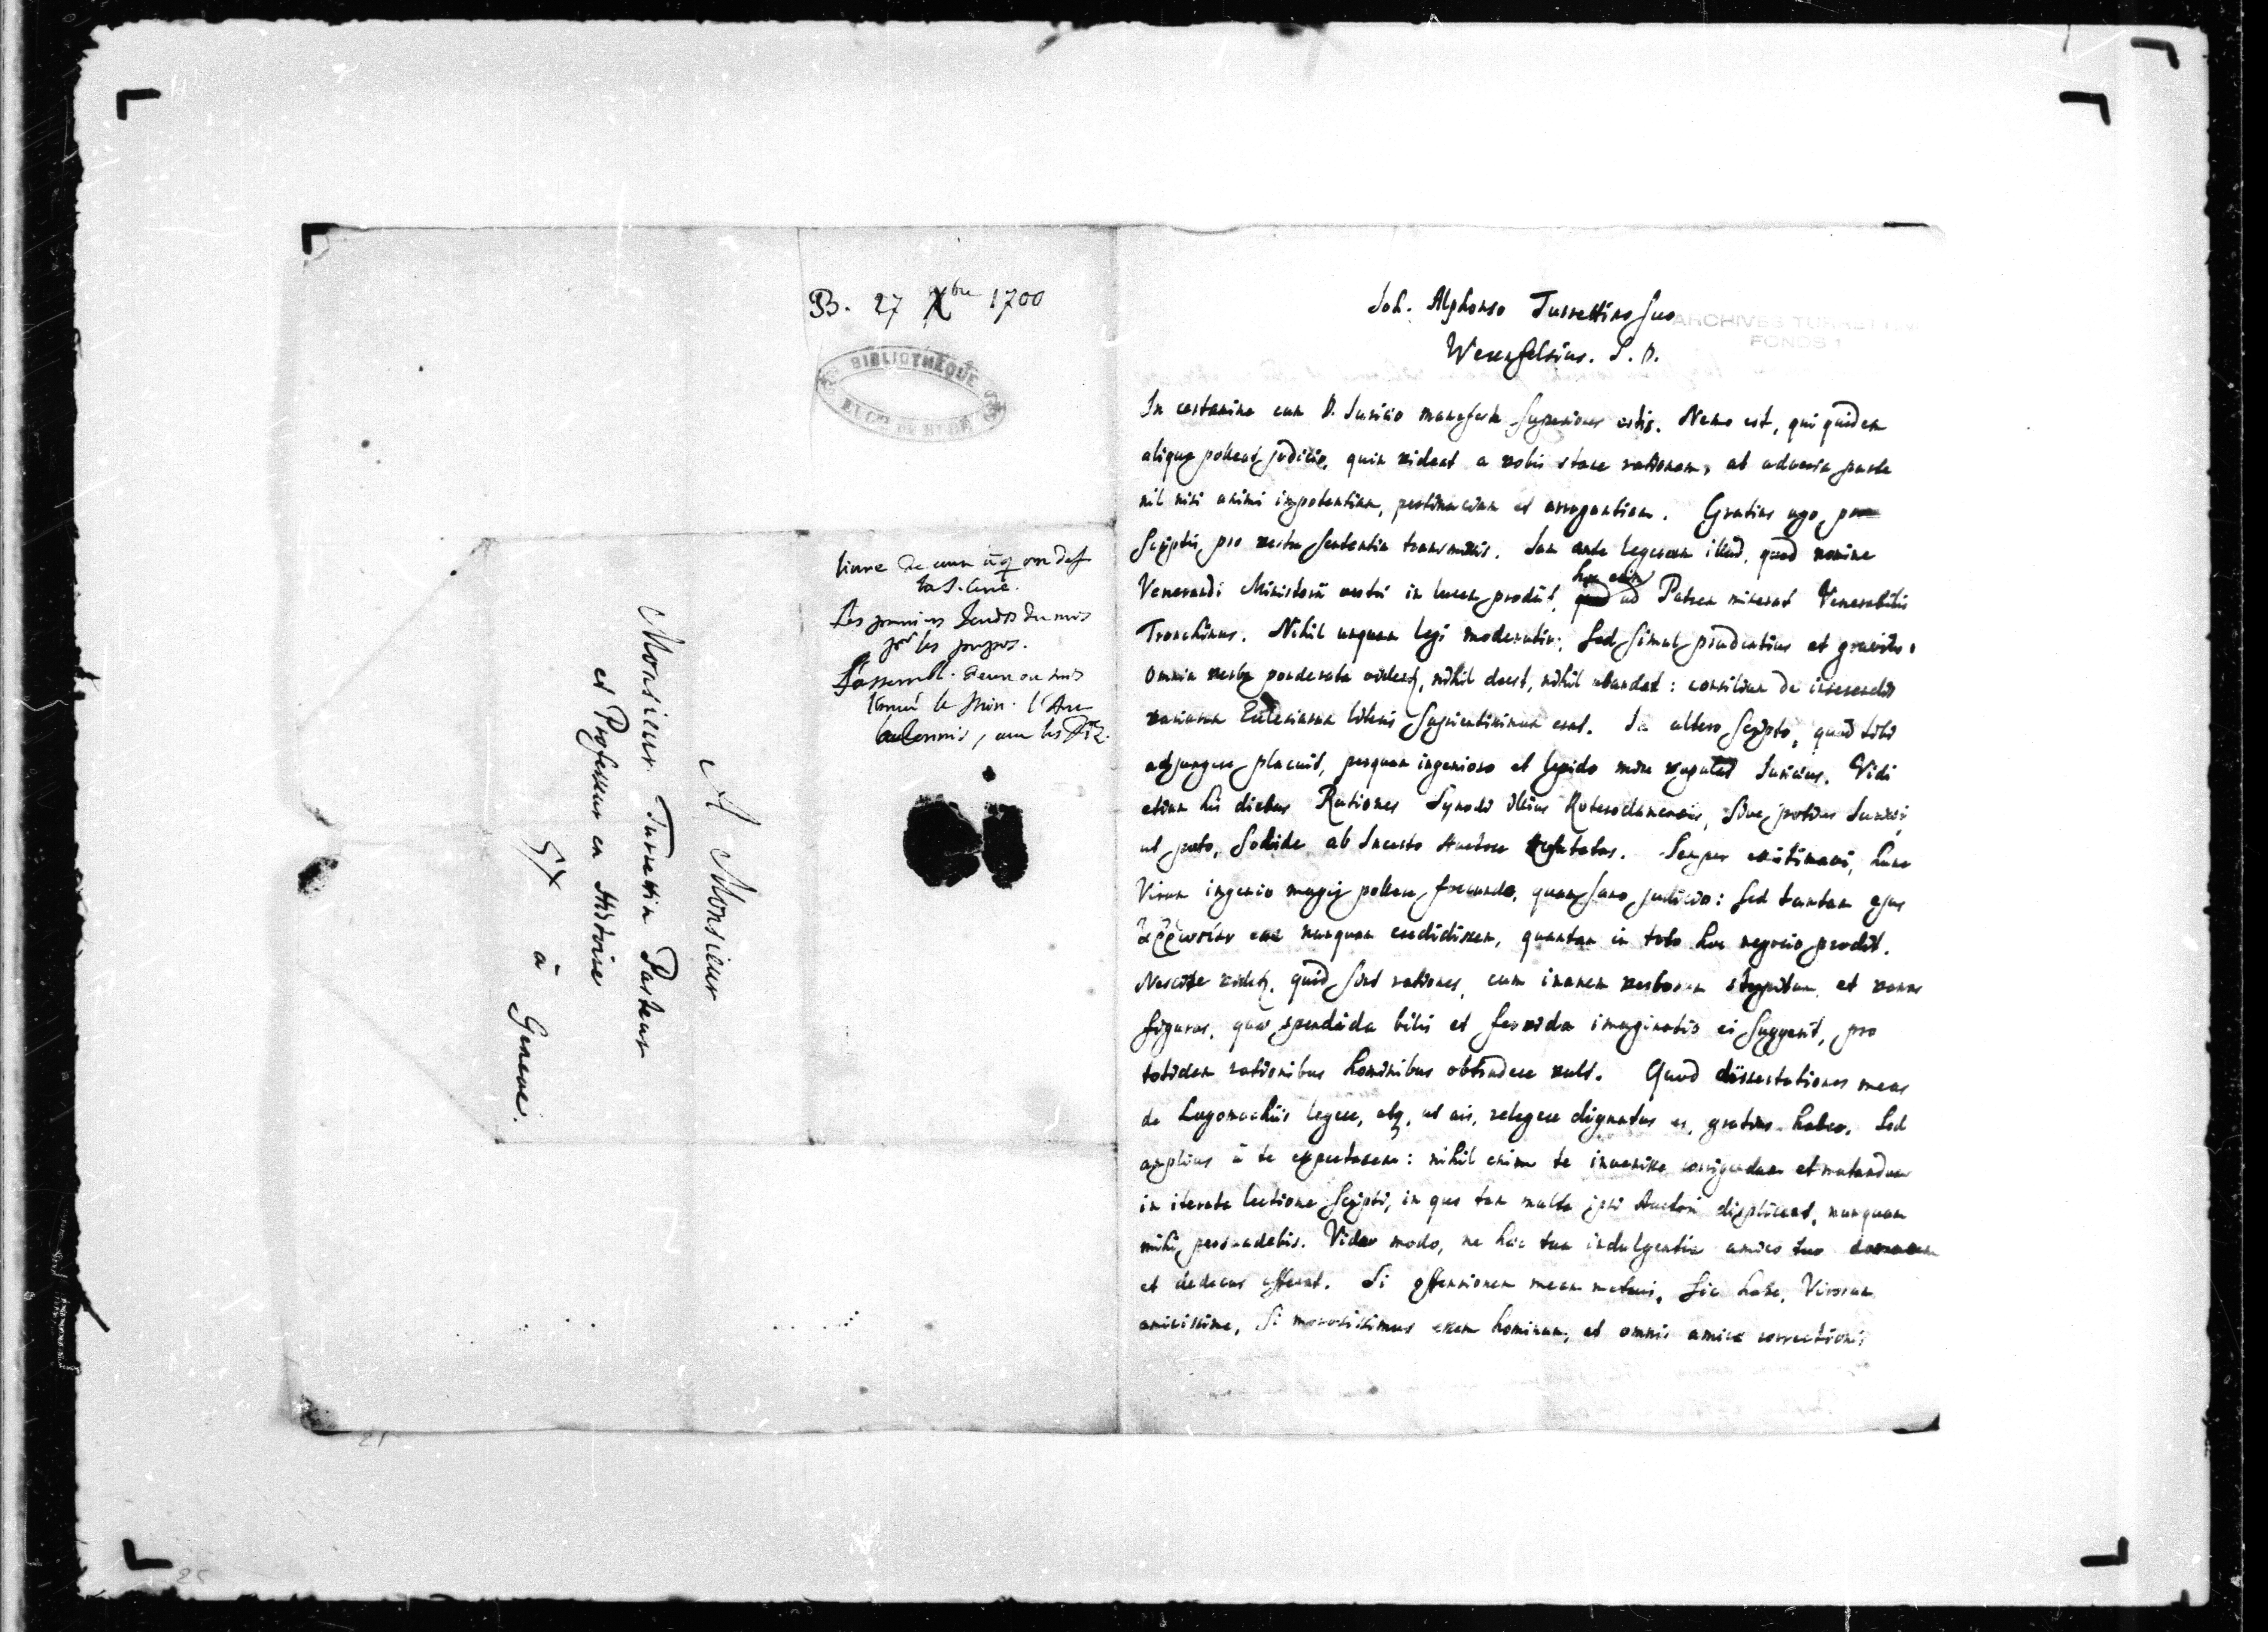 B. 27 Xbre 1700
BIBLIOTHÈQUE
EUGNE DE BUDÉ
Les premiers Jeudis du mois
pr les propos.
A Monsieur
Monsieur Turrettin Pasteur
et Professeur en Histoire
à Geneve.
ARCHIVES TURRETTINI
FONDS 1
Joh. Alphonso Turrettino suo
Werenfelsius. S. D.
In certamine cum D. Juricio manifeste superiores estis. Nemo est, qui quidem
aliquo polleat judicio, quin videat a vobis stare rationem, ab adversa parte
nil nisi animi impotentiam, pertinaciam et arrogantiam. Gratias ago, pro
scriptis pro vestra sententia transmissis. Jam ante legeram illud, quod nomine
Venerandi Ministerii vestri in lucem prodiit, hoc enim ad Patrem miserat Venerabilis
Tronchinus. Nihil unquam legi moderatius, sed simul prudentius et gravius.
Omnia verba ponderata videas, nihil deest, nihil abundat: consilium de inserendis
variarum Ecclesiarum literis sapientissimum erat. In altero scripto, quod tibi
adjungere placuit, perquam ingenioso et lepido more vapulat Juricius. Vidi
etiam his diebus Rationes Synodi illius Roterodamensis, sive potius Juricii,
ut puto, solide ab Incerto Auctore refutatas. Semper existimavi, hunc
Virum ingenio magis pollere fecundo, quam sano judicio: sed tantam ejus
ἀῤῥωστίαν esse nunquam credidissem, quantam in toto hoc negocio prodit.
Nescire videtur, quid sint rationes, cum inanem verborum strepitum, et vanas
figuras, quas splendida bilis et fervida imaginatio ei suggerit, pro
totidem rationibus hominibus obtrudere vult. Quod dissertationes meas
de Logomachiis legere, atq, ut ais, relegere dignatus es, gratias habeo. Sed
amplius à te expectarem: nihil enim te invenisse corrigendum et mutandum
in iterata lectione scripti, in quo tam multa ipsi Auctori displicent, nunquam
mihi persuadebis. Vide modo, ne haec tua indulgentia amico tuo
et dedecus afferat. Si offensionem meam metuis, sic habe, Virorum
amicissime, si morosissimus essem hominum, et omnis amicae correctionis